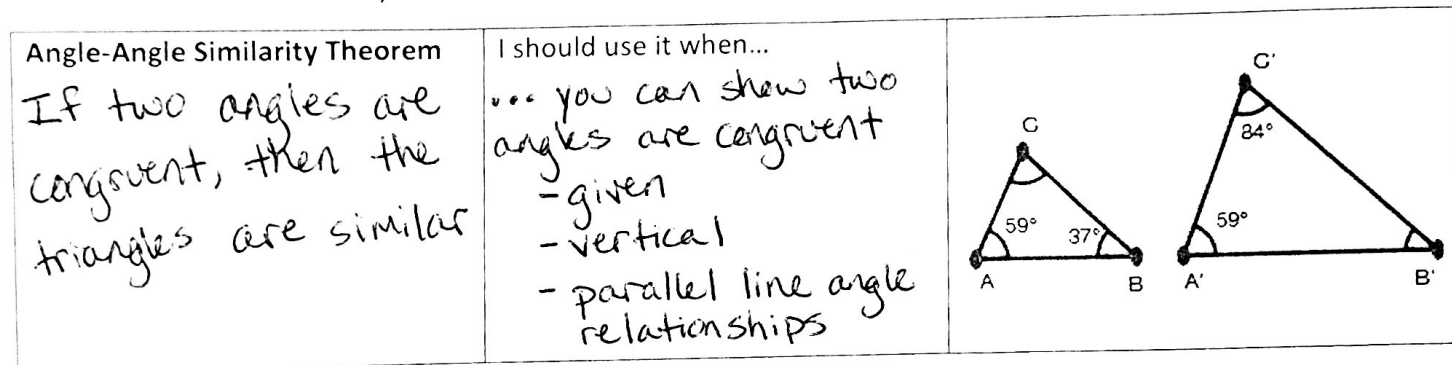 Angle-Angle Similarity Theorem
If two angles are
congruent, then the
triangles are similar
I should use it when...
... you can show two
angles are congruent
- given
- vertical
- parallel line angle
relationships
C
59°
37°
A
B
C'
84°
59°
A'
B'